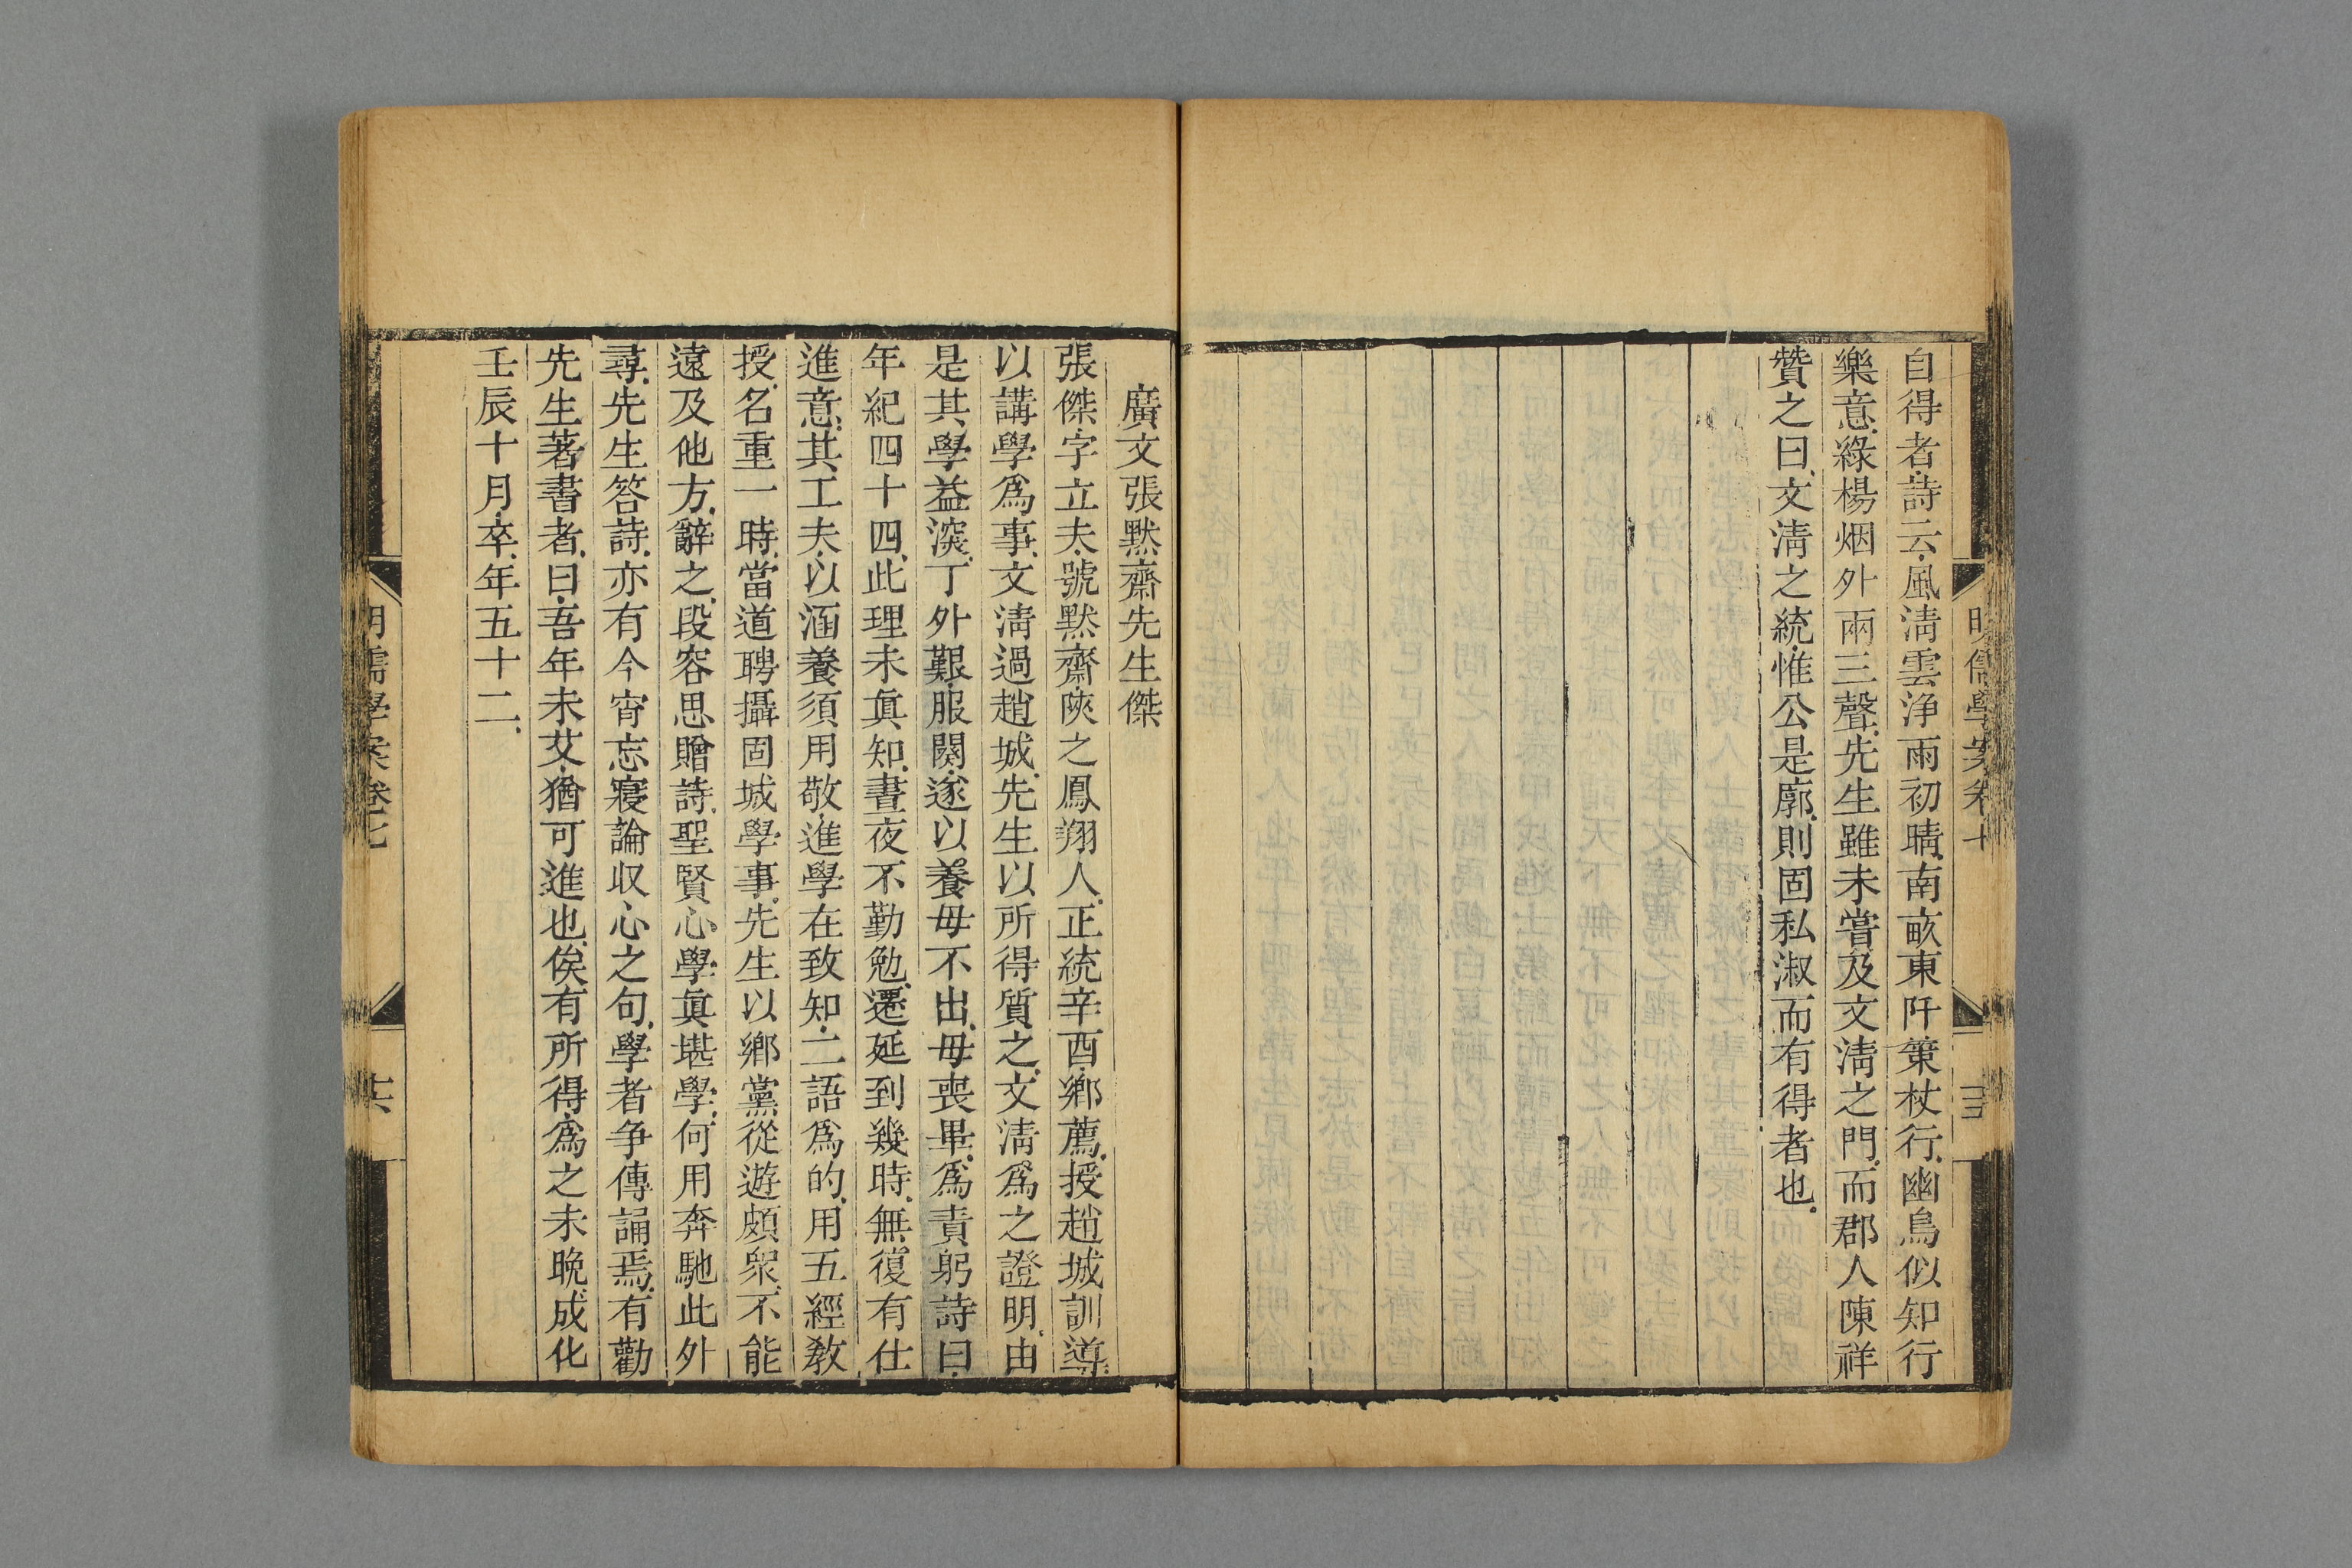 自得者詩云風淸雲浄雨初晴南畝東阡策杖行幽鳥似知行
樂意綠楊烟外兩三聲先生雖未嘗及文淸之門而郡人陳祥
贊之曰文淸之統惟公是廓則固私淑而有得者也
廣文張默齋先生傑
張傑字立夫號默齋陝之鳳翔人正統辛酉鄉薦授趙城訓導
以講學爲事文淸過趙城先生以所得質之文淸爲之證明由
是其學益深丁外艱服闋遂以養母不出母喪畢爲責躬詩曰
年紀四十四此理未眞知晝夜不勤勉遷延到幾時無復有仕
進意其工夫以涵養須用敬進學在致知二語爲的用五經敎
授名重一時當道聘攝固城學事先生以鄉黨從遊頗衆不能
遠及他方辭之段容思贈詩聖賢心學眞堪學何用奔馳此外
尋先生答詩亦有今宵忘寢論收心之句學者争傳誦焉有勸
先生著書者曰吾年未艾猶可進也俟有所得爲之未晩成化
壬辰十月卒年五十二
明儒學案卷七